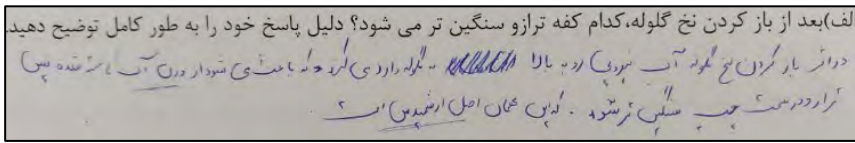 الف)بعد از باز کردن نخ گلوله،کدام کفه ترازو سنگین تر می شود؟ دلیل پاسخ خود را به طور کامل توضیح دهید.
در اثر باز کردن نخ گلوله آب نیرویی رو به بالا به گلوله وارد می کند که باعث می شود از وزن آن کاسته شده پس
ترازو در سمت چپ سنگین تر شود. که این همان اصل ارشمیدس است